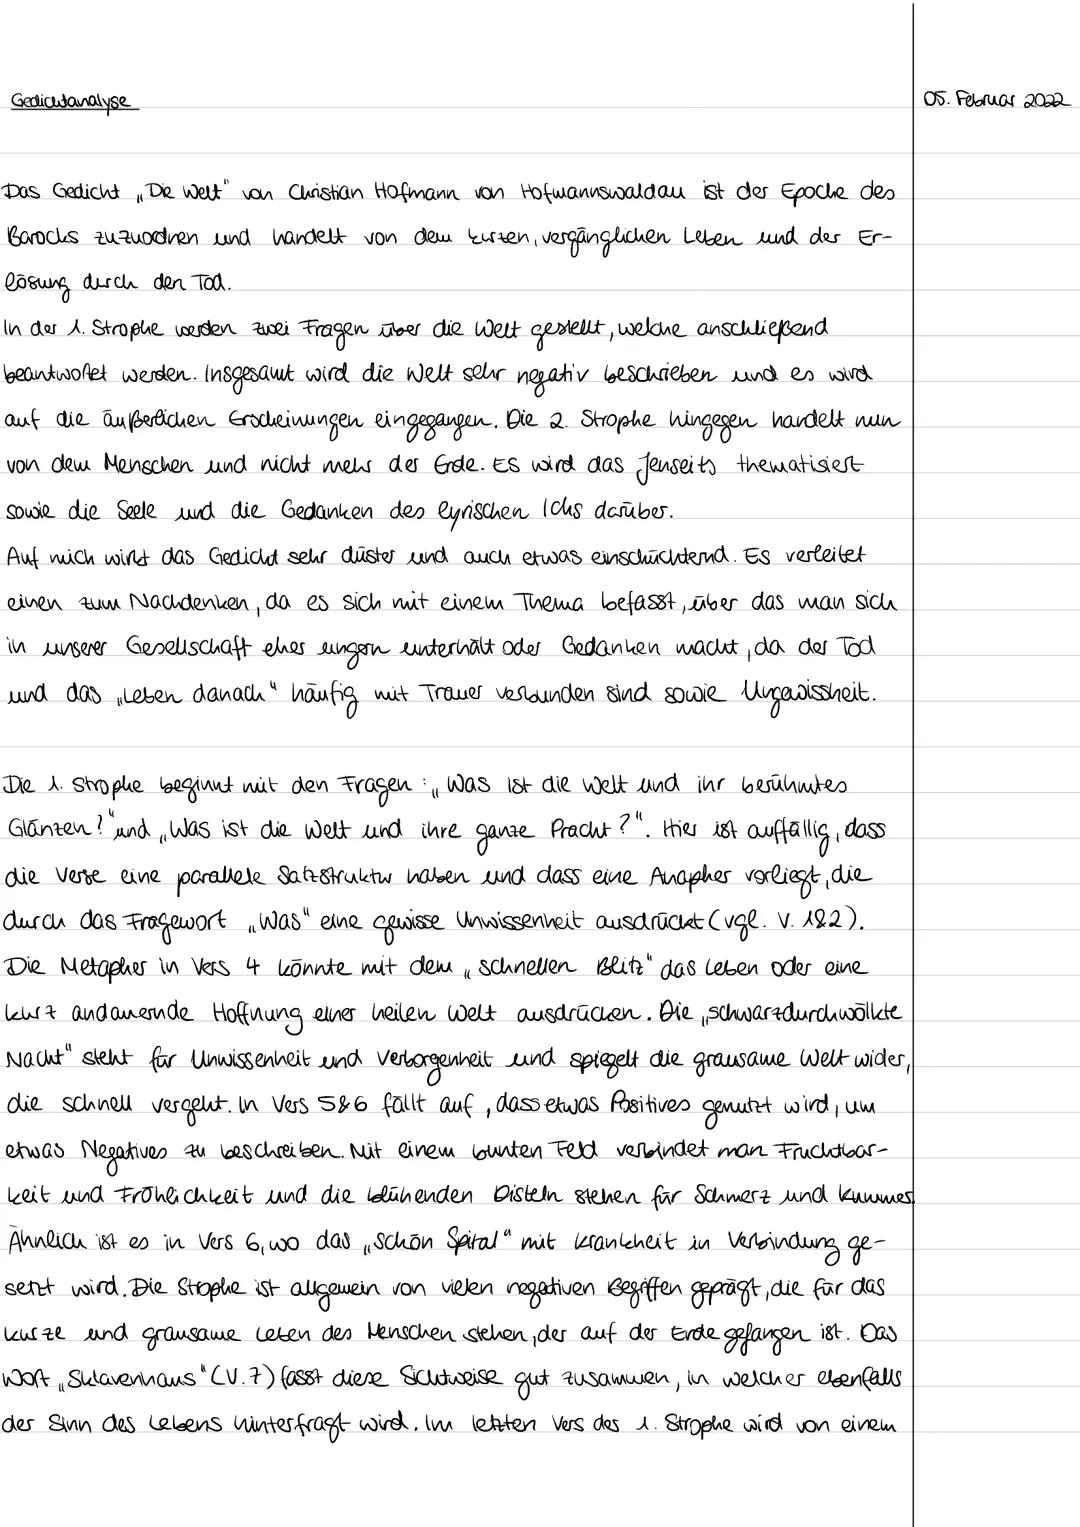 Gedichtanalyse
05. Februar 2022
Das Gedicht „Die Welt" von Christian Hofmann von Hofmannswaldau ist der Epoche des
Barocks zuzuordnen und handelt von dem kurzen, vergänglichen Leben und der Er-
lösung durch den Tod.
In der 1. Strophe werden zwei Fragen über die Welt gestellt, welche anschließend
beantwortet werden. Insgesamt wird die Welt sehr negativ beschrieben und es wird
auf die äußerlichen Erscheinungen eingegangen. Die 2. Strophe hingegen handelt nun
von dem Menschen und nicht mehr der Erde. Es wird das Jenseits thematisiert
sowie die Seele und die Gedanken des lyrischen Ichs darüber.
Auf mich wirkt das Gedicht sehr düster und auch etwas einschüchternd. Es verleitet
einen zum Nachdenken, da es sich mit einem Thema befasst, über das man sich
in unserer Gesellschaft eher ungern unterhält oder Gedanken macht, da der Tod
und das „Leben danach" häufig mit Trauer verbunden sind sowie Ungewissheit.
Die 1. Strophe beginnt mit den Fragen: „Was ist die Welt und ihr berühmtes
Glänzen?" und „Was ist die Welt und ihre ganze Pracht?". Hier ist auffällig, dass
die Verse eine parallele Satzstruktur haben und dass eine Anapher vorliegt, die
durch das Fragewort „Was" eine gewisse Unwissenheit ausdrückt (vgl. V. 1&2).
Die Metapher in Vers 4 könnte mit dem „schnellen Blitz" das Leben oder eine
kurz andauernde Hoffnung einer heilen Welt ausdrücken. Die „schwarzdurchwölkte
Nacht" steht für Unwissenheit und Verborgenheit und spiegelt die grausame Welt wider,
die schnell vergeht. In Vers 5&6 fällt auf, dass etwas Positives genutzt wird, um
etwas Negatives zu beschreiben. Mit einem bunten Feld verbindet man Fruchtbar-
keit und Fröhlichkeit und die blühenden Disteln stehen für Schmerz und Kummer.
Ähnlich ist es in Vers 6, wo das „schön Spital" mit Krankheit in Verbindung ge-
setzt wird. Die Strophe ist allgemein von vielen negativen Begriffen geprägt, die für das
kurze und grausame Leben des Menschen stehen, der auf der Erde gefangen ist. Das
Wort „Sklavenhaus" (V.7) fasst diese Sichtweise gut zusammen, in welcher ebenfalls
der Sinn des Lebens hinterfragt wird. Im letzten Vers der 1. Strophe wird von einem